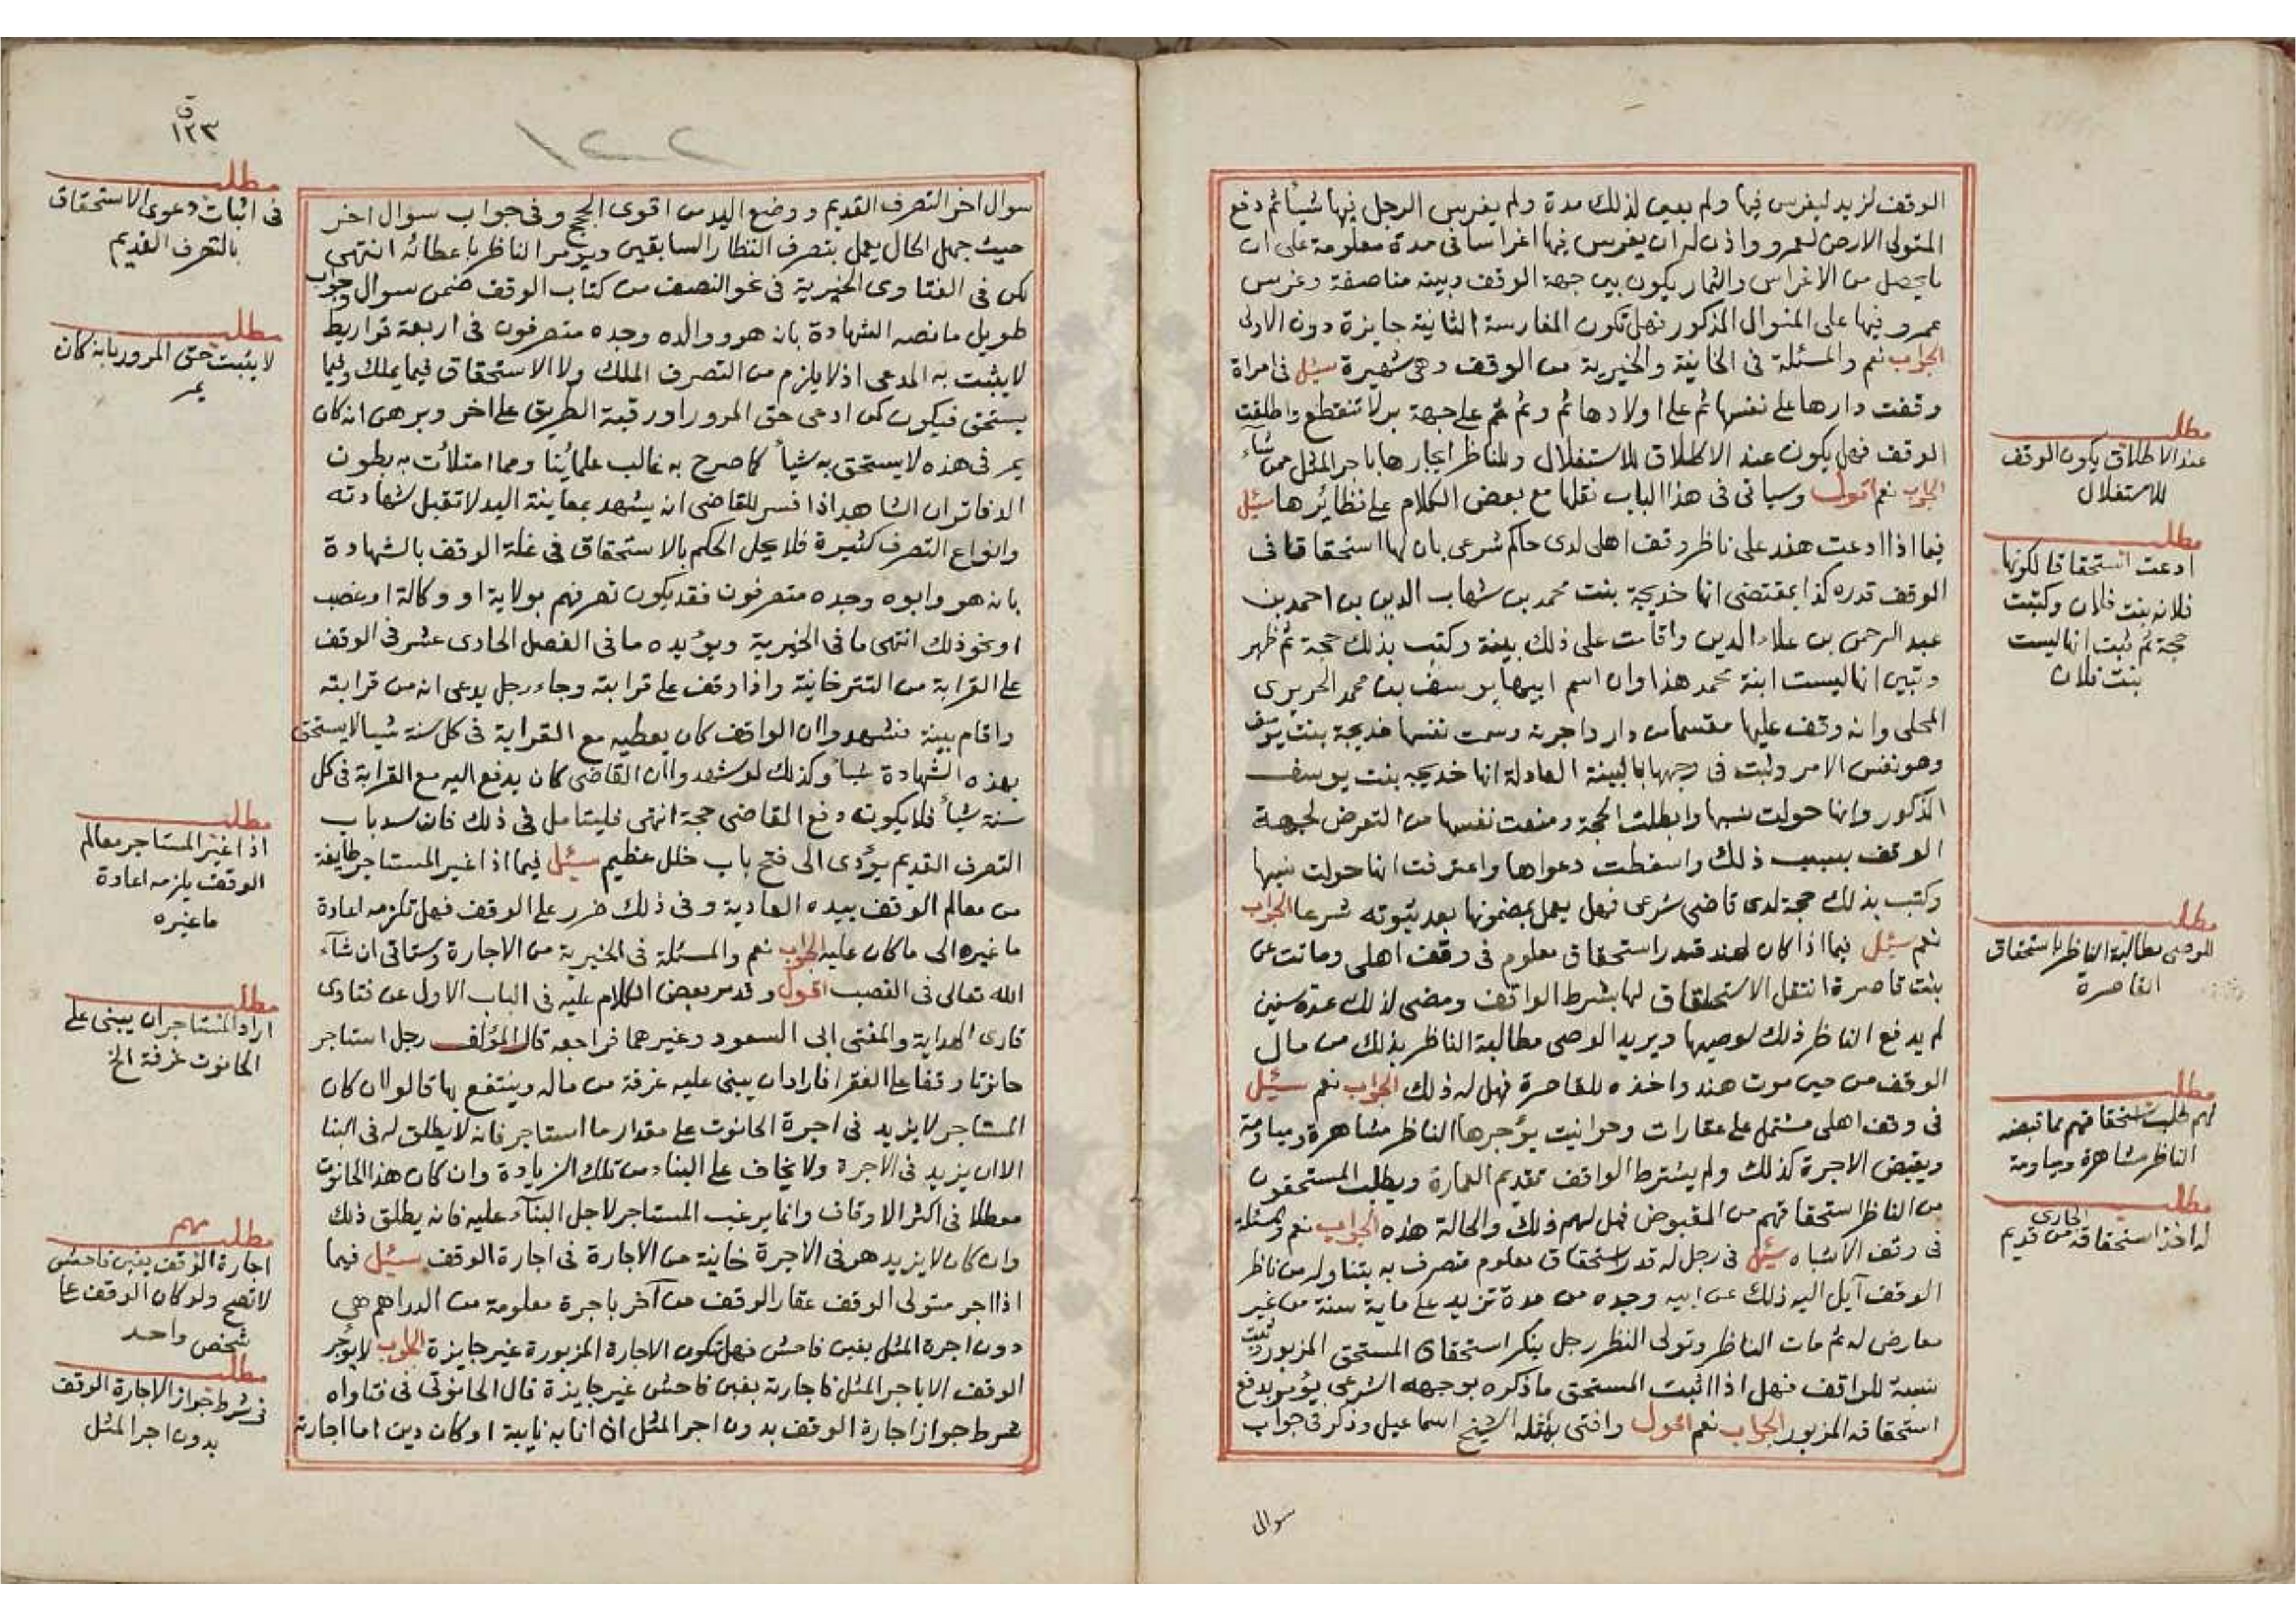 الوقف لزيد ليغرس فيها ولم يبين لذلك مدة ولم يغرس الرجل فيها شيأ ثم دفع
المتولى الارض لعمرو واذن له ان يغرس فيها اغراسا فى مدة معلومة على ان
ما يحصل من الاغراس والثمار يكون بين جهة الوقف وبينه مناصفة وغرس
عمرو فيها على المنوال المذكور فهل تكون المغارسة الثانية جايزة دون الاولى
الجواب نعم والمسئلة فى الخانية والخيرية من الوقف وهى شهيرة سئل فى امراة
وقفت دارها على نفسها ثم على اولادها ثم وثم ثم على جهة بر لا تنقطع واطلقت
الوقف فهل يكون عند الاطلاق للاستغلال وللناظر ايجارها باجر المثل ممن شآء
الجواب نعم اقول وسياتى فى هذا الباب نقلها مع بعض الكلام على نظائرها سئل
فيما اذا ادعت هند على ناظر وقف اهلى لدى حاكم شرعى بان لها استحقاقا فى
الوقف قدره كذا بمقتضى انها خديجة بنت محمد بن شهاب الدين بن احمد بن
عبد الرحمن بن علاء الدين واقامت على ذلك بينة وكتب بذلك حجة ثم ظهر
وتبين انها ليست ابنة محمد هذا وان اسم ابيها يوسف بن محمد الحريرى
المحلى وانه وقف عليها مقسما من دار واجرته وسمت نفسها خديجة بنت يوسف
وهو نفس الامر وثبت فى وجهها بالبينة العادلة انها خديجه بنت يوسف
المذكور وانها حولت نسبها وابطلت الحجة ومنعت نفسها من التعرض لجهة
الوقف بسبب ذلك واسقطت دعواها واعترفت انها حولت نسبها
وكتب بذلك حجة لدى قاضى شرعى فهل يعمل بمضمونها بعد ثبوته شرعا الجواب
نعم سئل فيما اذا كان لهند قدر استحقاق معلوم فى وقف اهلى وماتت عن
بنت قاصرة انتقل الاستحقاق لها بشرط الواقف ومضى لذلك عدة سنين
لم يدفع الناظر ذلك لوصيها ويريد الوصى مطالبة الناظر بذلك من مال
الوقف من حين موت هند واخذه للقاصرة فهل له ذلك الجواب نعم سئل
فى وقف اهلى مشتمل على عقارات وحوانيت يؤجرها الناظر مشاهرة ومياومة
ويقبض الاجرة كذلك ولم يشترط الواقف تقديم العمارة ويطلب المستحقون
من الناظر استحقاقهم من المقبوض فهل لهم ذلك والحالة هذه الجواب نعم والمسئلة
فى وقف الاشباه سئل فى رجل له قدر استحقاق معلوم متصرف به يتناوله من ناظر
الوقف آيل اليه ذلك عن ابيه وجده من مدة تزيد على ماية سنة من غير
معارض له ثم مات الناظر وتولى النظر رجل ينكر استحقاق المستحق المزبور
نسبة للواقف فهل اذا اثبت المستحق ما ذكره بوجهه الشرعى يؤمر بدفع
استحقاقه المزبور الجواب نعم اقول وافتى بمثله الشيخ اسماعيل وذكر فى جواب
سوال
مطلب
عند الاطلاق يكون الوقف
للاستغلال
مطلب
ادعت استحقاقا لكونها
فلانه بنت فلان وكتبت
حجة ثم ثبت انها ليست
بنت فلان
مطلب
للوصى مطالبة الناظر باستحقاق
القاصرة
مطلب
لهم طلب استحقاقهم مما قبضه
الناظر مشاهرة ومياومة
مطلب
له اخذ استحقاقه الجارى من قديم
١٢٢
ق
١٢٣
سوال اخر التصرف القديم ووضع اليد من اقوى الحجج وفى جواب سوال اخر
حيث جهل الحال يعمل بتصرف النظار السابقين ويؤمر الناظر باعطائه انتهى
لكن فى الفتاوى الخيرية فى نحو النصف من كتاب الوقف ضمن سوال وجواب
طويل ما نصه الشهادة بانه هو ووالده وجده متصرفون فى اربعة قراريط
لا يثبت به المدعى اذ لا يلزم من التصرف الملك ولا الاستحقاق فيما يملك وفيما
يستحق فيكون كمن ادعى حق المرور او رقبة الطريق على اخر وبرهن انه كان
يمر فى هذه لا يستحق به شيأ كما صرح به غالب علمائنا ومما امتلأت به بطون
الدفاتر ان الشاهد اذا فسر للقاضى انه يشهد بمعاينة اليد لا تقبل شهادته
وانواع التصرف كثيرة فلا يحل الحكم بالاستحقاق فى غلة الوقف بالشهادة
بانه هو وابوه وجده متصرفون فقد يكون تصرفهم بولاية او وكالة او غصب
او نحو ذلك انتهى ما فى الخيرية ويؤيده ما فى الفصل الحادى عشر فى الوقف
على القرابة من التترخانية واذا وقف على قرابته وجاء رجل يدعى انه من قرابته
واقام بينة فشهدوا ان الواقف كان يعطيه مع القرابة فى كل سنة شيا لا يستحق
بهذه الشهادة شيأ وكذلك لو شهدوا ان القاضى كان يدفع اليه مع القرابة فى كل
سنة شيأ فلا يكون دفع القاضى حجة انتهى فليتامل فى ذلك فان سد باب
التصرف القديم يؤدى الى فتح باب خلل عظيم سئل فيما اذا غير المستاجر طايفة
من معالم الوقف بيده العادية وفى ذلك ضرر على الوقف فهل تلزمه اعادة
ما غيره الى ما كان عليه الجواب نعم والمسئلة فى الخيرية من الاجارة وستاتى ان شآء
الله تعالى فى الغصب اقول وقد مر بعض الكلام عليه فى الباب الاول عن فتاوى
قارى الهداية والمفتى ابى السعود وغيرهما فراجعه قال المؤلف رجل استاجر
حانوتا وقفا على الفقرا فاراد ان يبنى عليه غرفة من ماله وينتفع بها قالوا ان كان
المستاجر لا يزيد فى اجرة الحانوت على مقدار ما استاجر فانه لا يطلق له فى البنا
الا ان يزيد فى الاجرة ولا يخاف على البناء من تلك الزيادة وان كان هذا الحانوت
معطلا فى اكثر الاوقات وانما يرغب المستاجر لاجل البنآء عليه فانه يطلق ذلك
وان كان لا يزيد هو فى الاجرة خانية من الاجارة فى اجارة الوقف سئل فيما
اذا اجر متولى الوقف عقار الوقف من آخر باجرة معلومة من الدراهم هى
دون اجرة المثل بغبن فاحش فهل تكون الاجارة المزبورة غير جايزة الجواب لا يؤجر
الوقف الا باجر المثل فاجارته بغبن فاحش غير جايزة قال الحانوتى فى فتاواه
شرط جواز اجارة الوقف بدون اجر المثل ان نابه نايبة او كان دين اما اجارته
مطلب
فى اثبات دعوى الاستحقاق
بالتصرف القديم
مطلب
لا يثبت حق المرور بانه كان
يمر
مطلب
اذا غير المستاجر معالم
الوقف يلزمه اعادة
ما غيره
مطلب
اراد المستاجر ان يبنى على
الحانوت غرفة الخ
مطلب مهم
اجارة الوقف بغبن فاحش
لا تصح ولو كان الوقف على
شخص واحد
مطلب
فى شرط جواز الاجارة الوقف
بدون اجر المثل